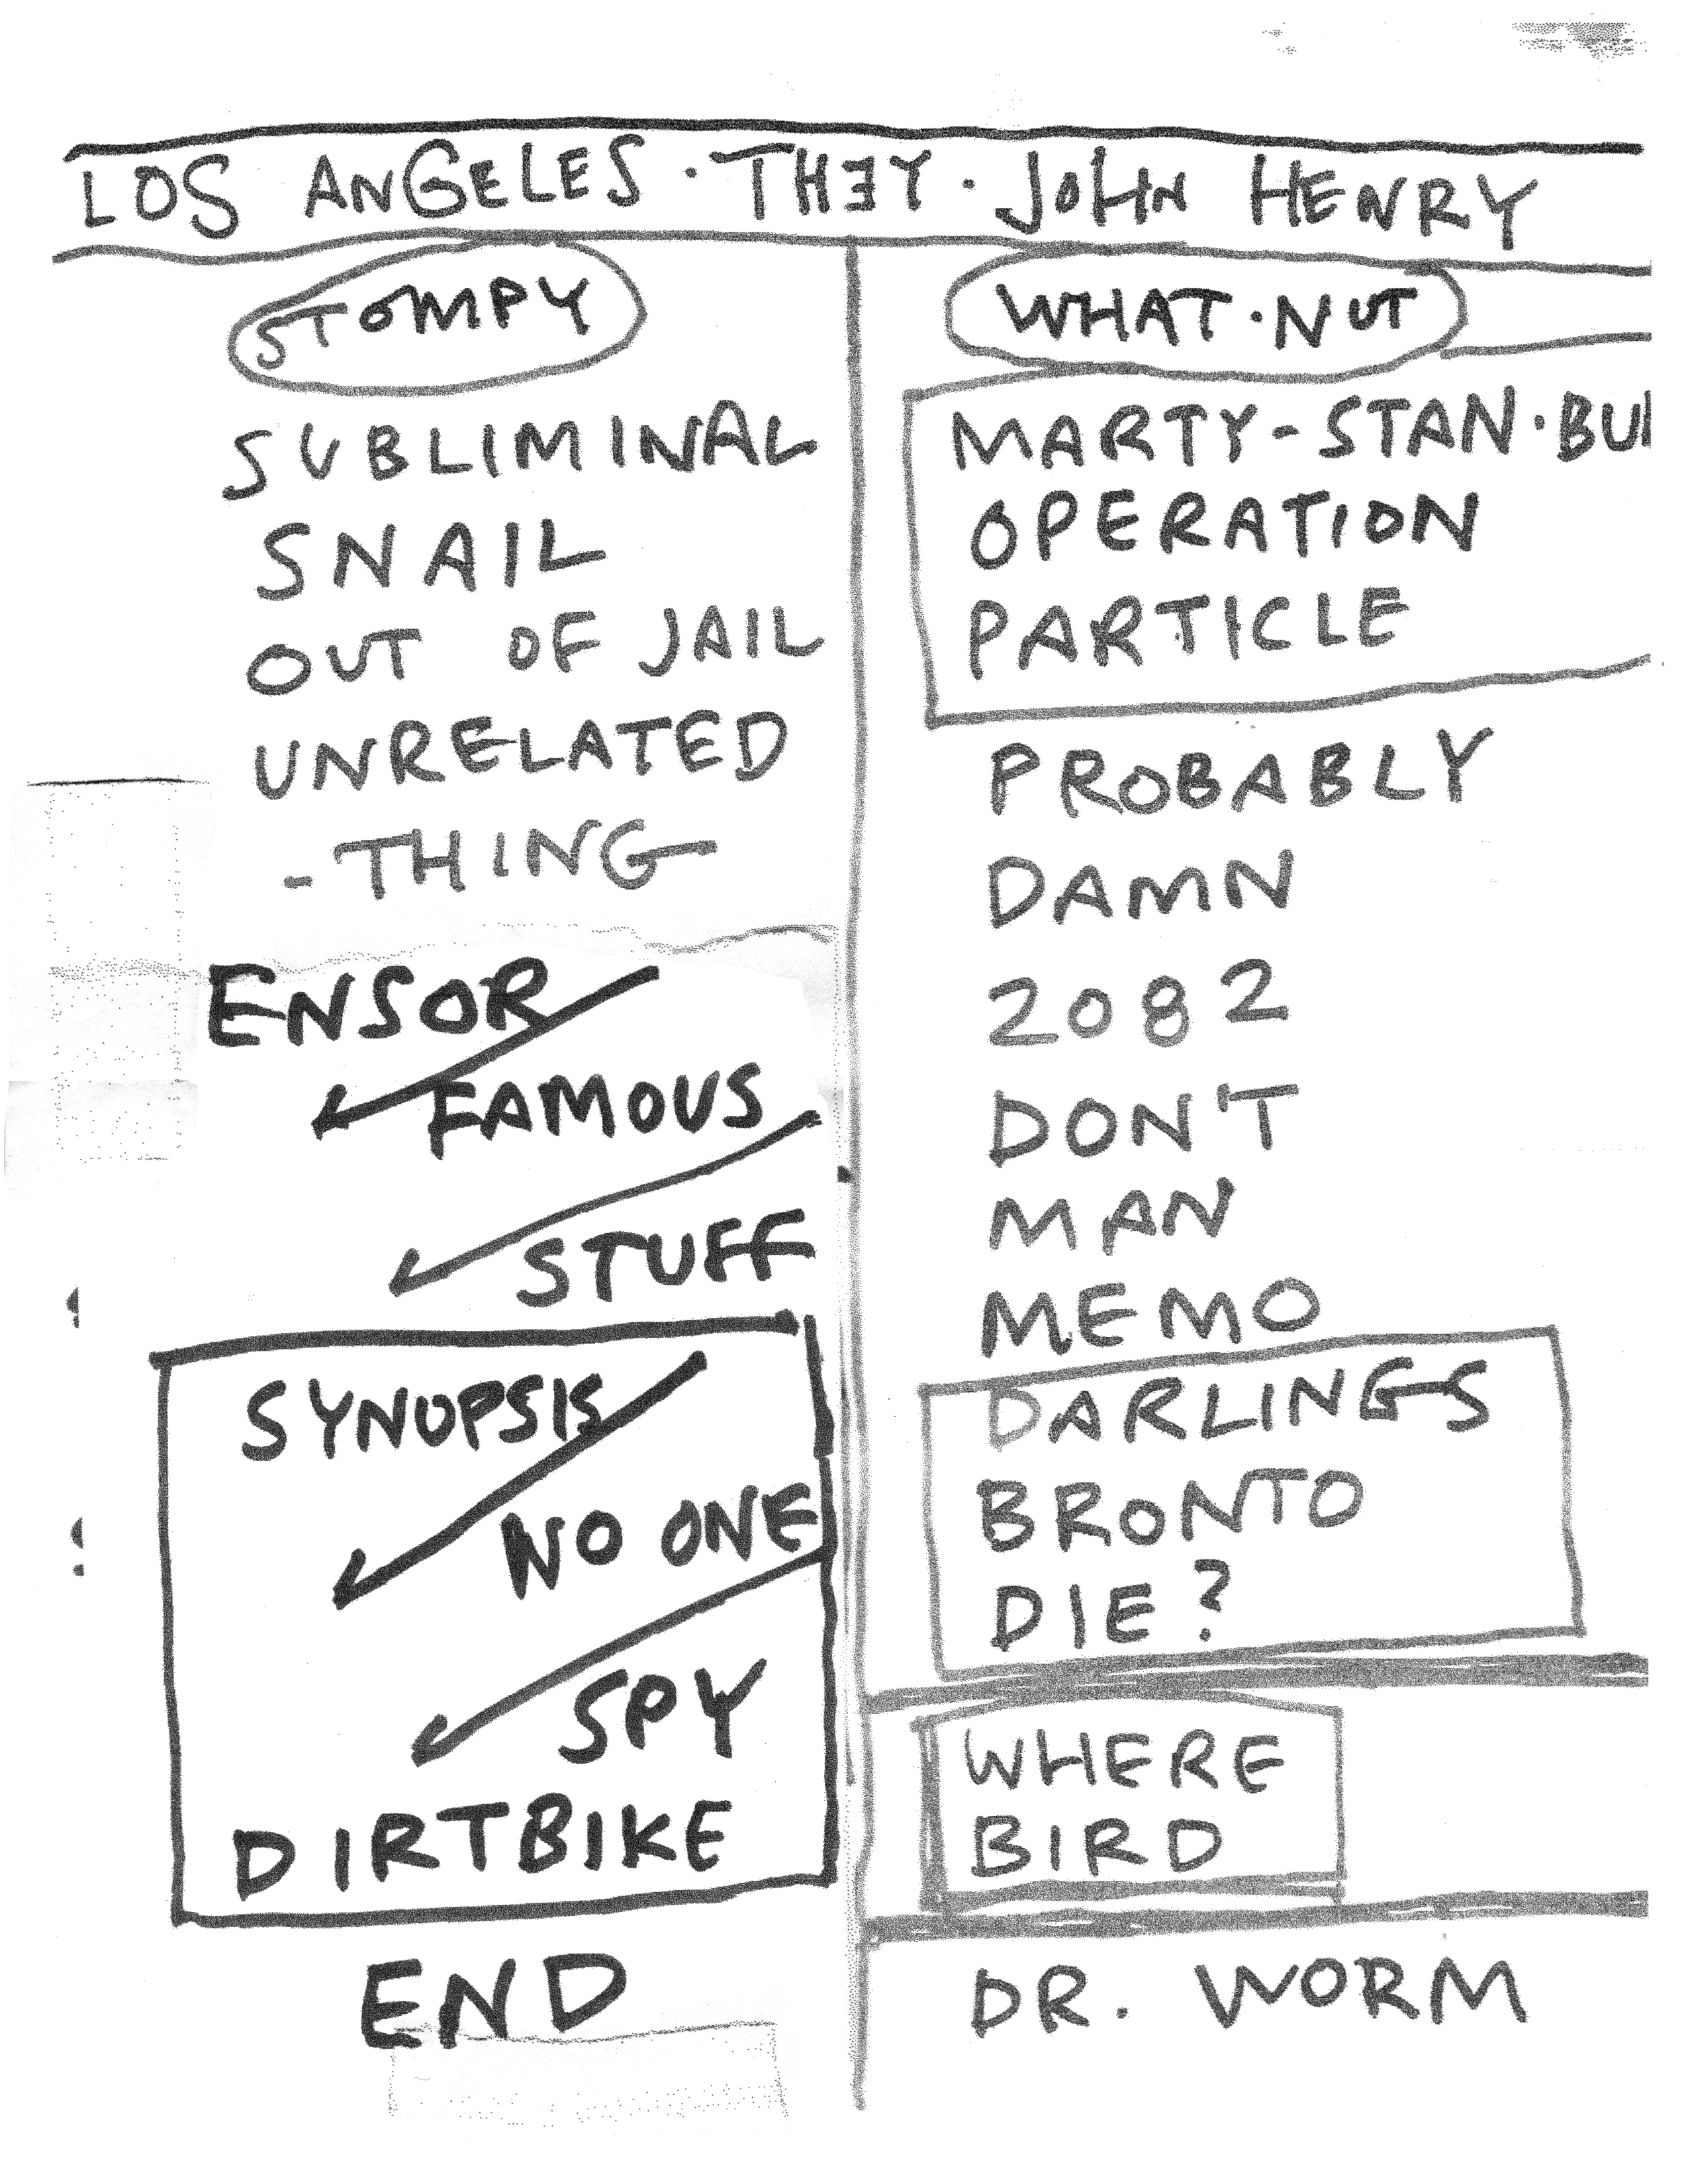 LOS ANGELES · THEY · JOHN HENRY
STOMPY
SUBLIMINAL
SNAIL
OUT OF JAIL
UNRELATED
-THING-
ENSOR
FAMOUS
STUFF
SYNOPSIS
NO ONE
SPY
DIRTBIKE
END
WHAT·NUT
MARTY-STAN·BUI
OPERATION
PARTICLE
PROBABLY
DAMN
2082
DON'T
MAN
MEMO
DARLINGS
BRONTO
DIE?
WHERE
BIRD
DR. WORM